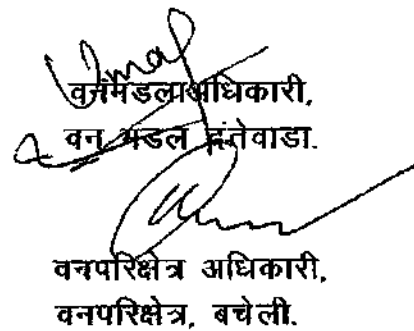 वनमंडलाअधिकारी,
वन मंडल दंतेवाडा.
वनपरिक्षेत्र अधिकारी,
वनपरिक्षेत्र, बचेली.